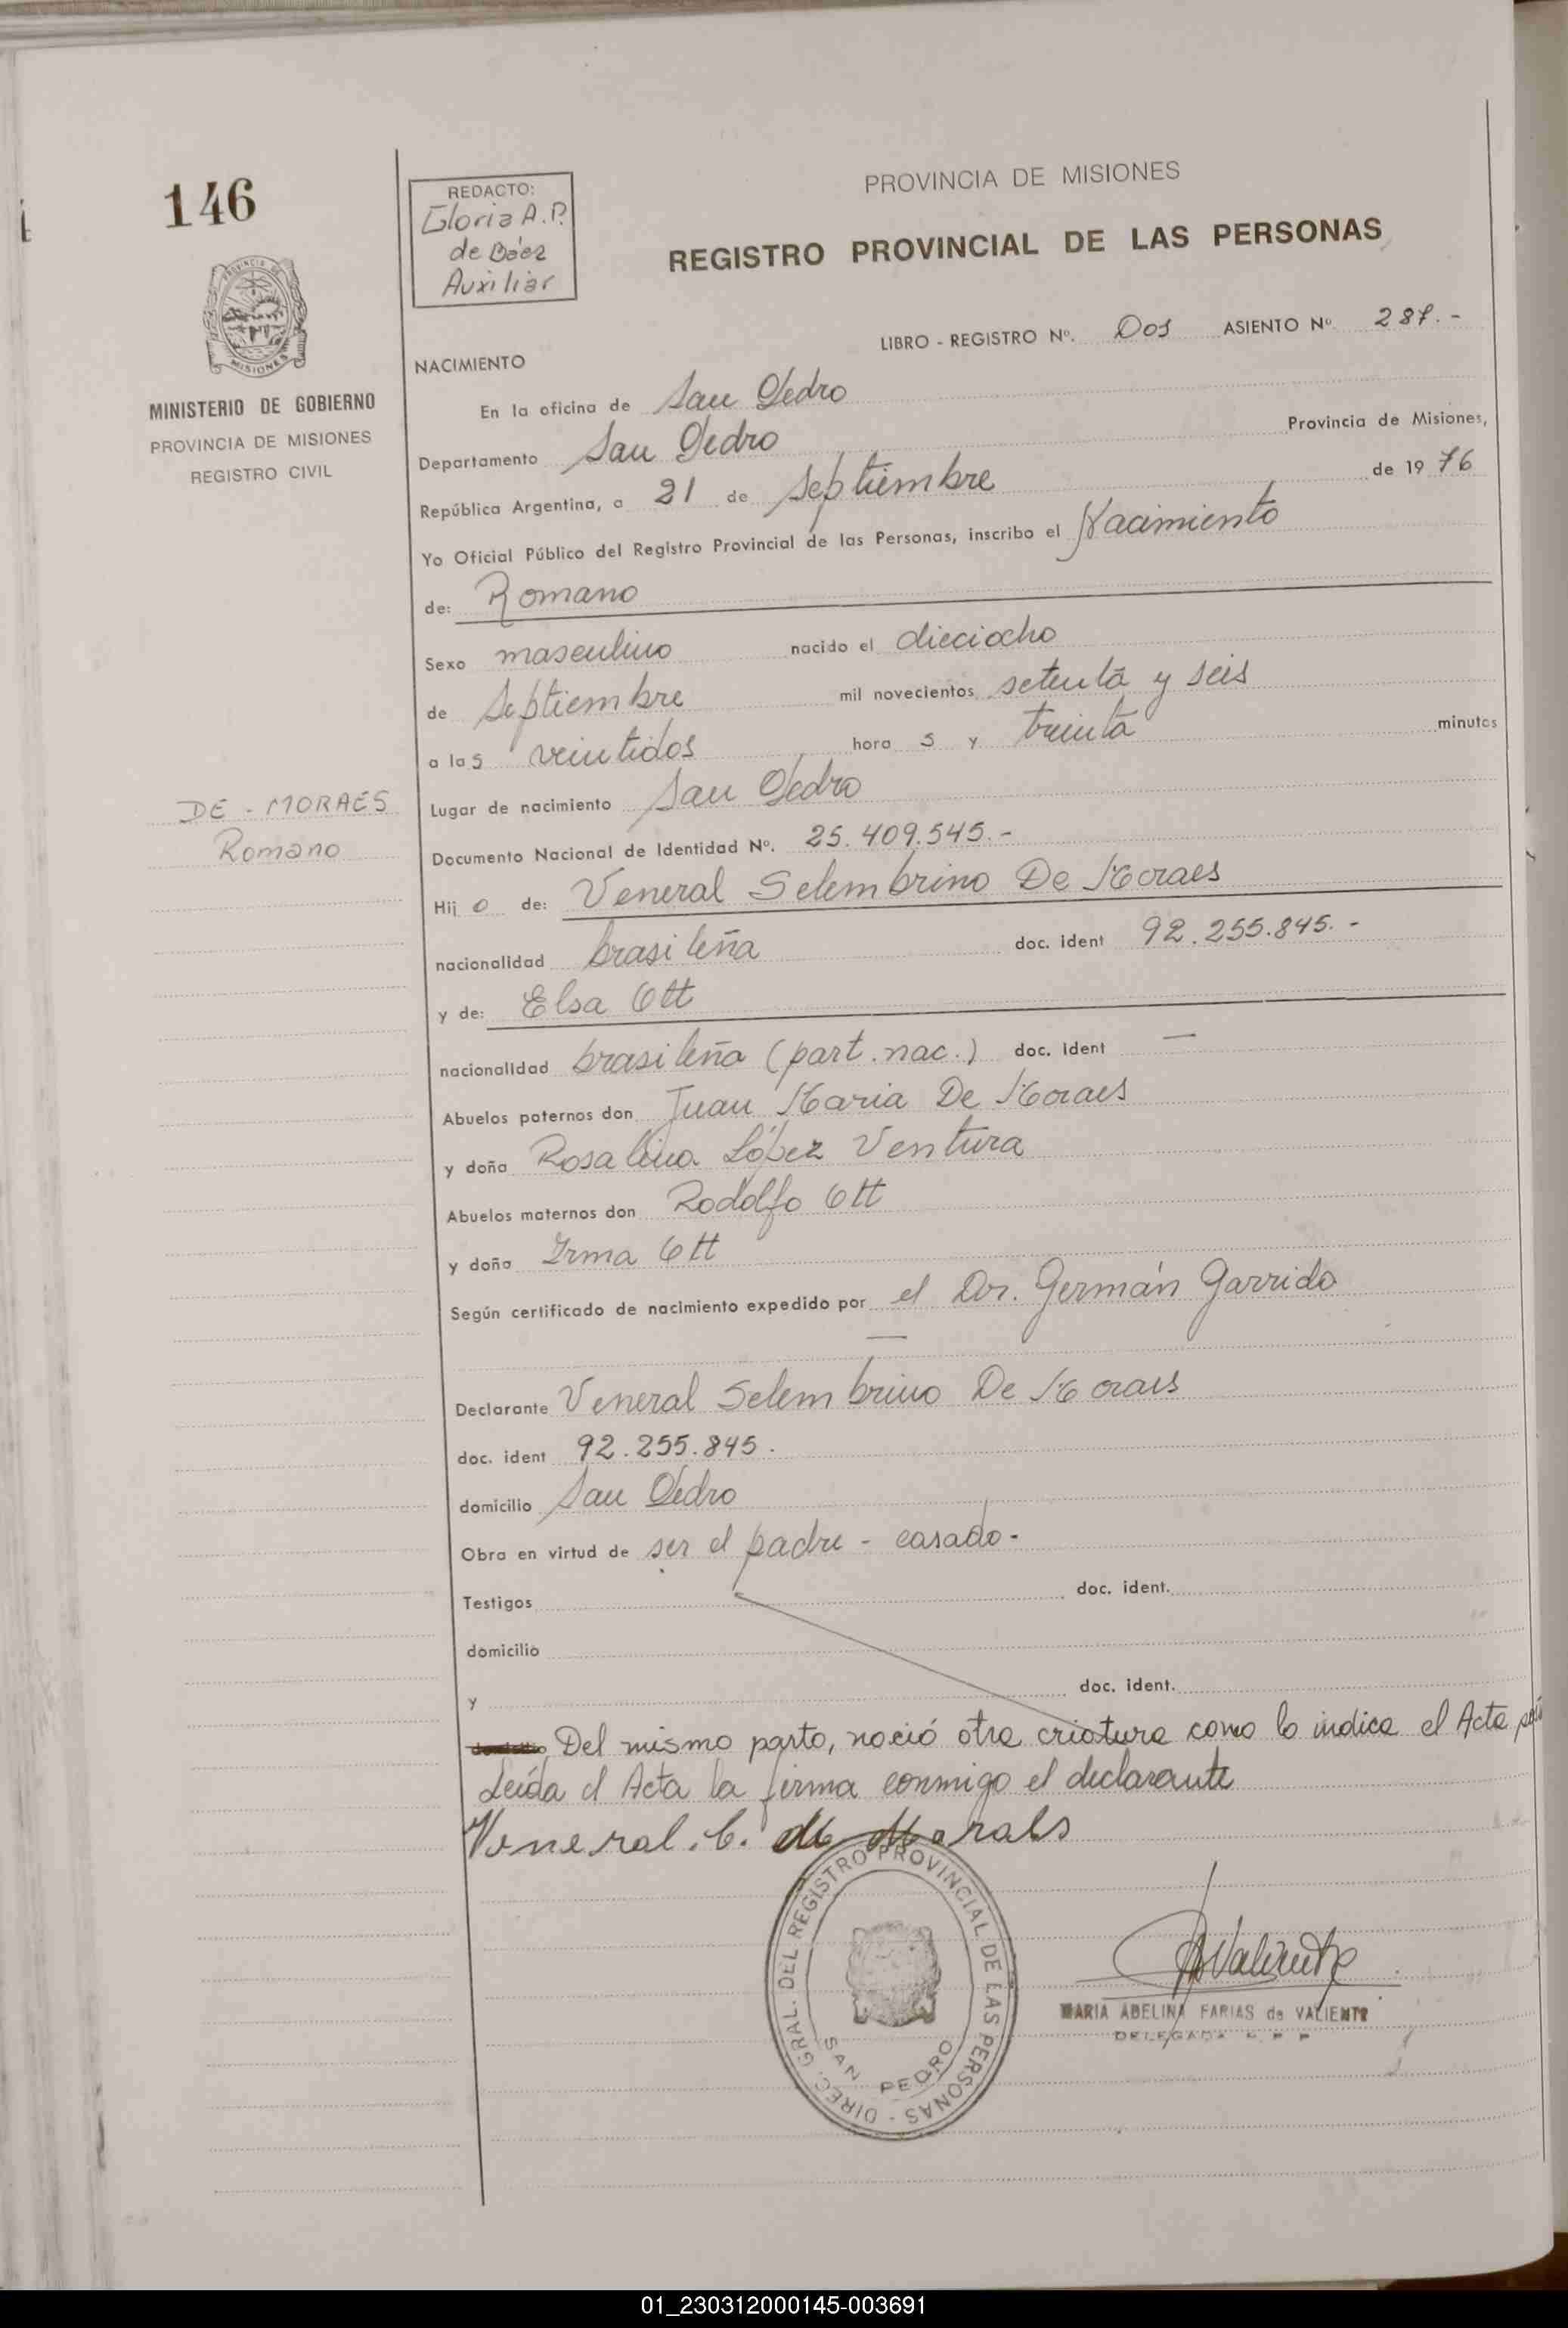 146
REDACTO:
Gloria A.P.
de Báez
Auxiliar
PROVINCIA DE MISIONES
REGISTRO PROVINCIAL DE LAS PERSONAS
PROVINCIA DE
MISIONES
MINISTERIO DE GOBIERNO
PROVINCIA DE MISIONES
REGISTRO CIVIL
LIBRO - REGISTRO Nº. Dos ASIENTO Nº. 287.-
NACIMIENTO
En la oficina de San Pedro
Departamento San Pedro Provincia de Misiones,
República Argentina, a 21 de Septiembre de 1976
Yo Oficial Público del Registro Provincial de las Personas, inscribo el Nacimiento
de: Romano
Sexo masculino nacido el dieciocho
de Septiembre mil novecientos setenta y seis
a las veintidos hora s y treinta minutos
DE - MORAES
Romano
Lugar de nacimiento San Pedro
Documento Nacional de Identidad Nº. 25.409.545.-
Hijo de: Veneral Selembrino De Moraes
nacionalidad brasileña doc. ident 92.255.845.-
y de: Elsa Ott
nacionalidad brasileña (part. nac.) doc. ident —
Abuelos paternos don Juan Maria De Moraes
y doña Rosalina López Ventura
Abuelos maternos don Rodolfo Ott
y doña Irma Ott
Según certificado de nacimiento expedido por el Dr. Germán Garrido
—
Declarante Veneral Selembrino De Moraes
doc. ident 92.255.845.
domicilio San Pedro
Obra en virtud de ser el padre - casado-
Testigos doc. ident.
domicilio
y doc. ident.
Del mismo parto, nació otra criatura como lo indica el Acta
Leída el Acta la firma conmigo el declarante
Veneral. de Moraes
DIREC. GRAL. DEL REGISTRO PROVINCIAL DE LAS PERSONAS -
SAN PEDRO
MARIA ABELINA FARIAS de VALIENTE
DELEGADA
01_230312000145-003691